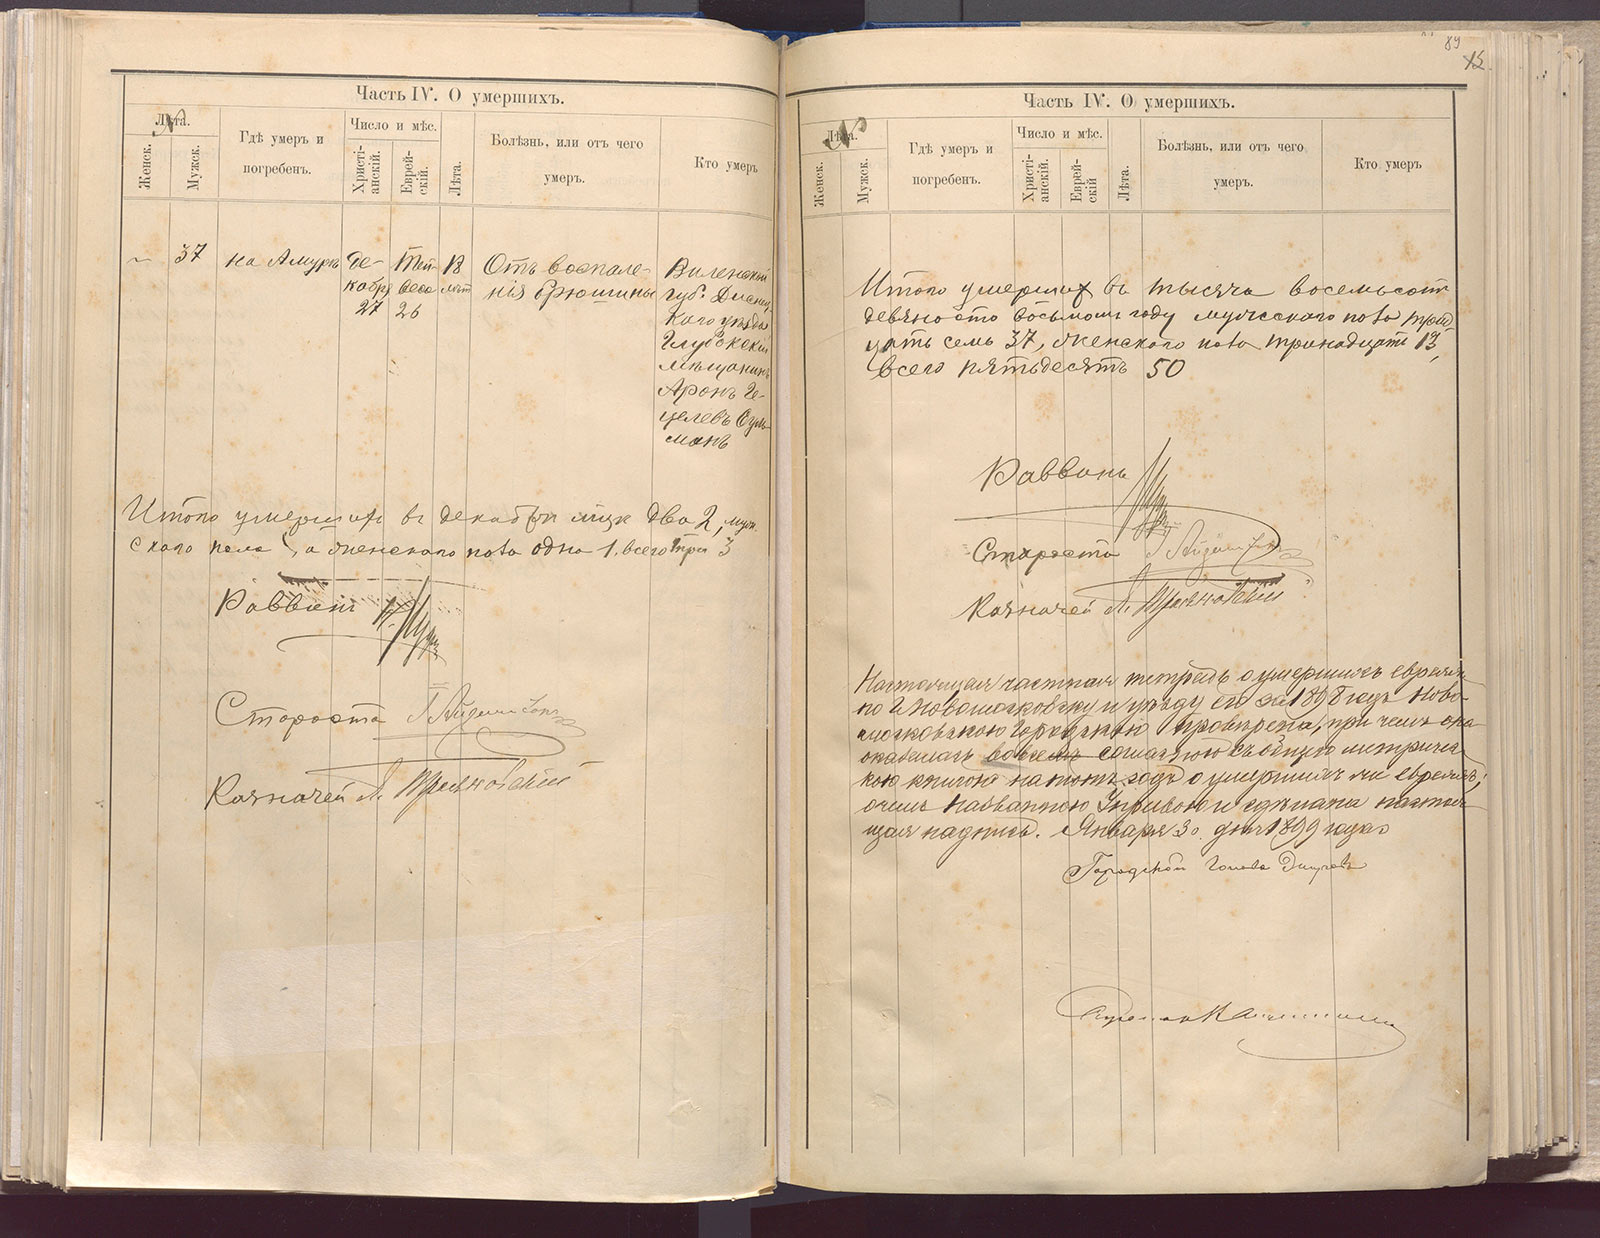 Часть IV. О умершихъ.
Лѣта.
№
Женск.
Мужск.
Гдѣ умеръ и
погребенъ.
Число и мѣс.
Христі-
анскій.
Еврей-
скій.
Лѣта.
Болѣзнь, или отъ чего
умеръ.
Кто умеръ
37
на Амурѣ
Де-
кабря
27
Тей-
веса
26
лѣтъ
Отъ воспале-
нія брюшины
Виленской
губ. Диснен-
скаго уѣзда
Глубокскій
мѣщанинъ
Аронъ Ге-
целевъ
манъ
Итого умершихъ въ декабрѣ мцѣ два 2, муж-
скаго пола, а женскаго пола одна 1, всего три 3
Раввинъ
Староста
Казначей Л.
89
15
Часть IV. О умершихъ.
Лѣта.
№
Женск.
Мужск.
Гдѣ умеръ и
погребенъ.
Число и мѣс.
Христі-
анскій.
Еврей-
скій
Лѣта.
Болѣзнь, или отъ чего
умеръ.
Кто умеръ
Итого умершихъ въ тысяча восемьсотъ
девяносто восьмомъ году мужескаго пола трид-
цать семь 37, женскаго пола тринадцать 13,
всего пятьдесятъ 50
Раввинъ
Староста
Казначей Л.
Настоящая частная тетрадь о умершихъ евреяхъ
по г. Новомосковску и уѣзду его за 1898 годъ Ново-
московскою Городскою Управою провѣрена, при чемъ она
оказалась во всемъ согласною съ общею метричес-
кою книгою на тотъ годъ о умершихъ же евреяхъ,
о чемъ названною Управою и сдѣлана настоя-
щая надпись. Января 30 дня 1899 года
Городской Голова